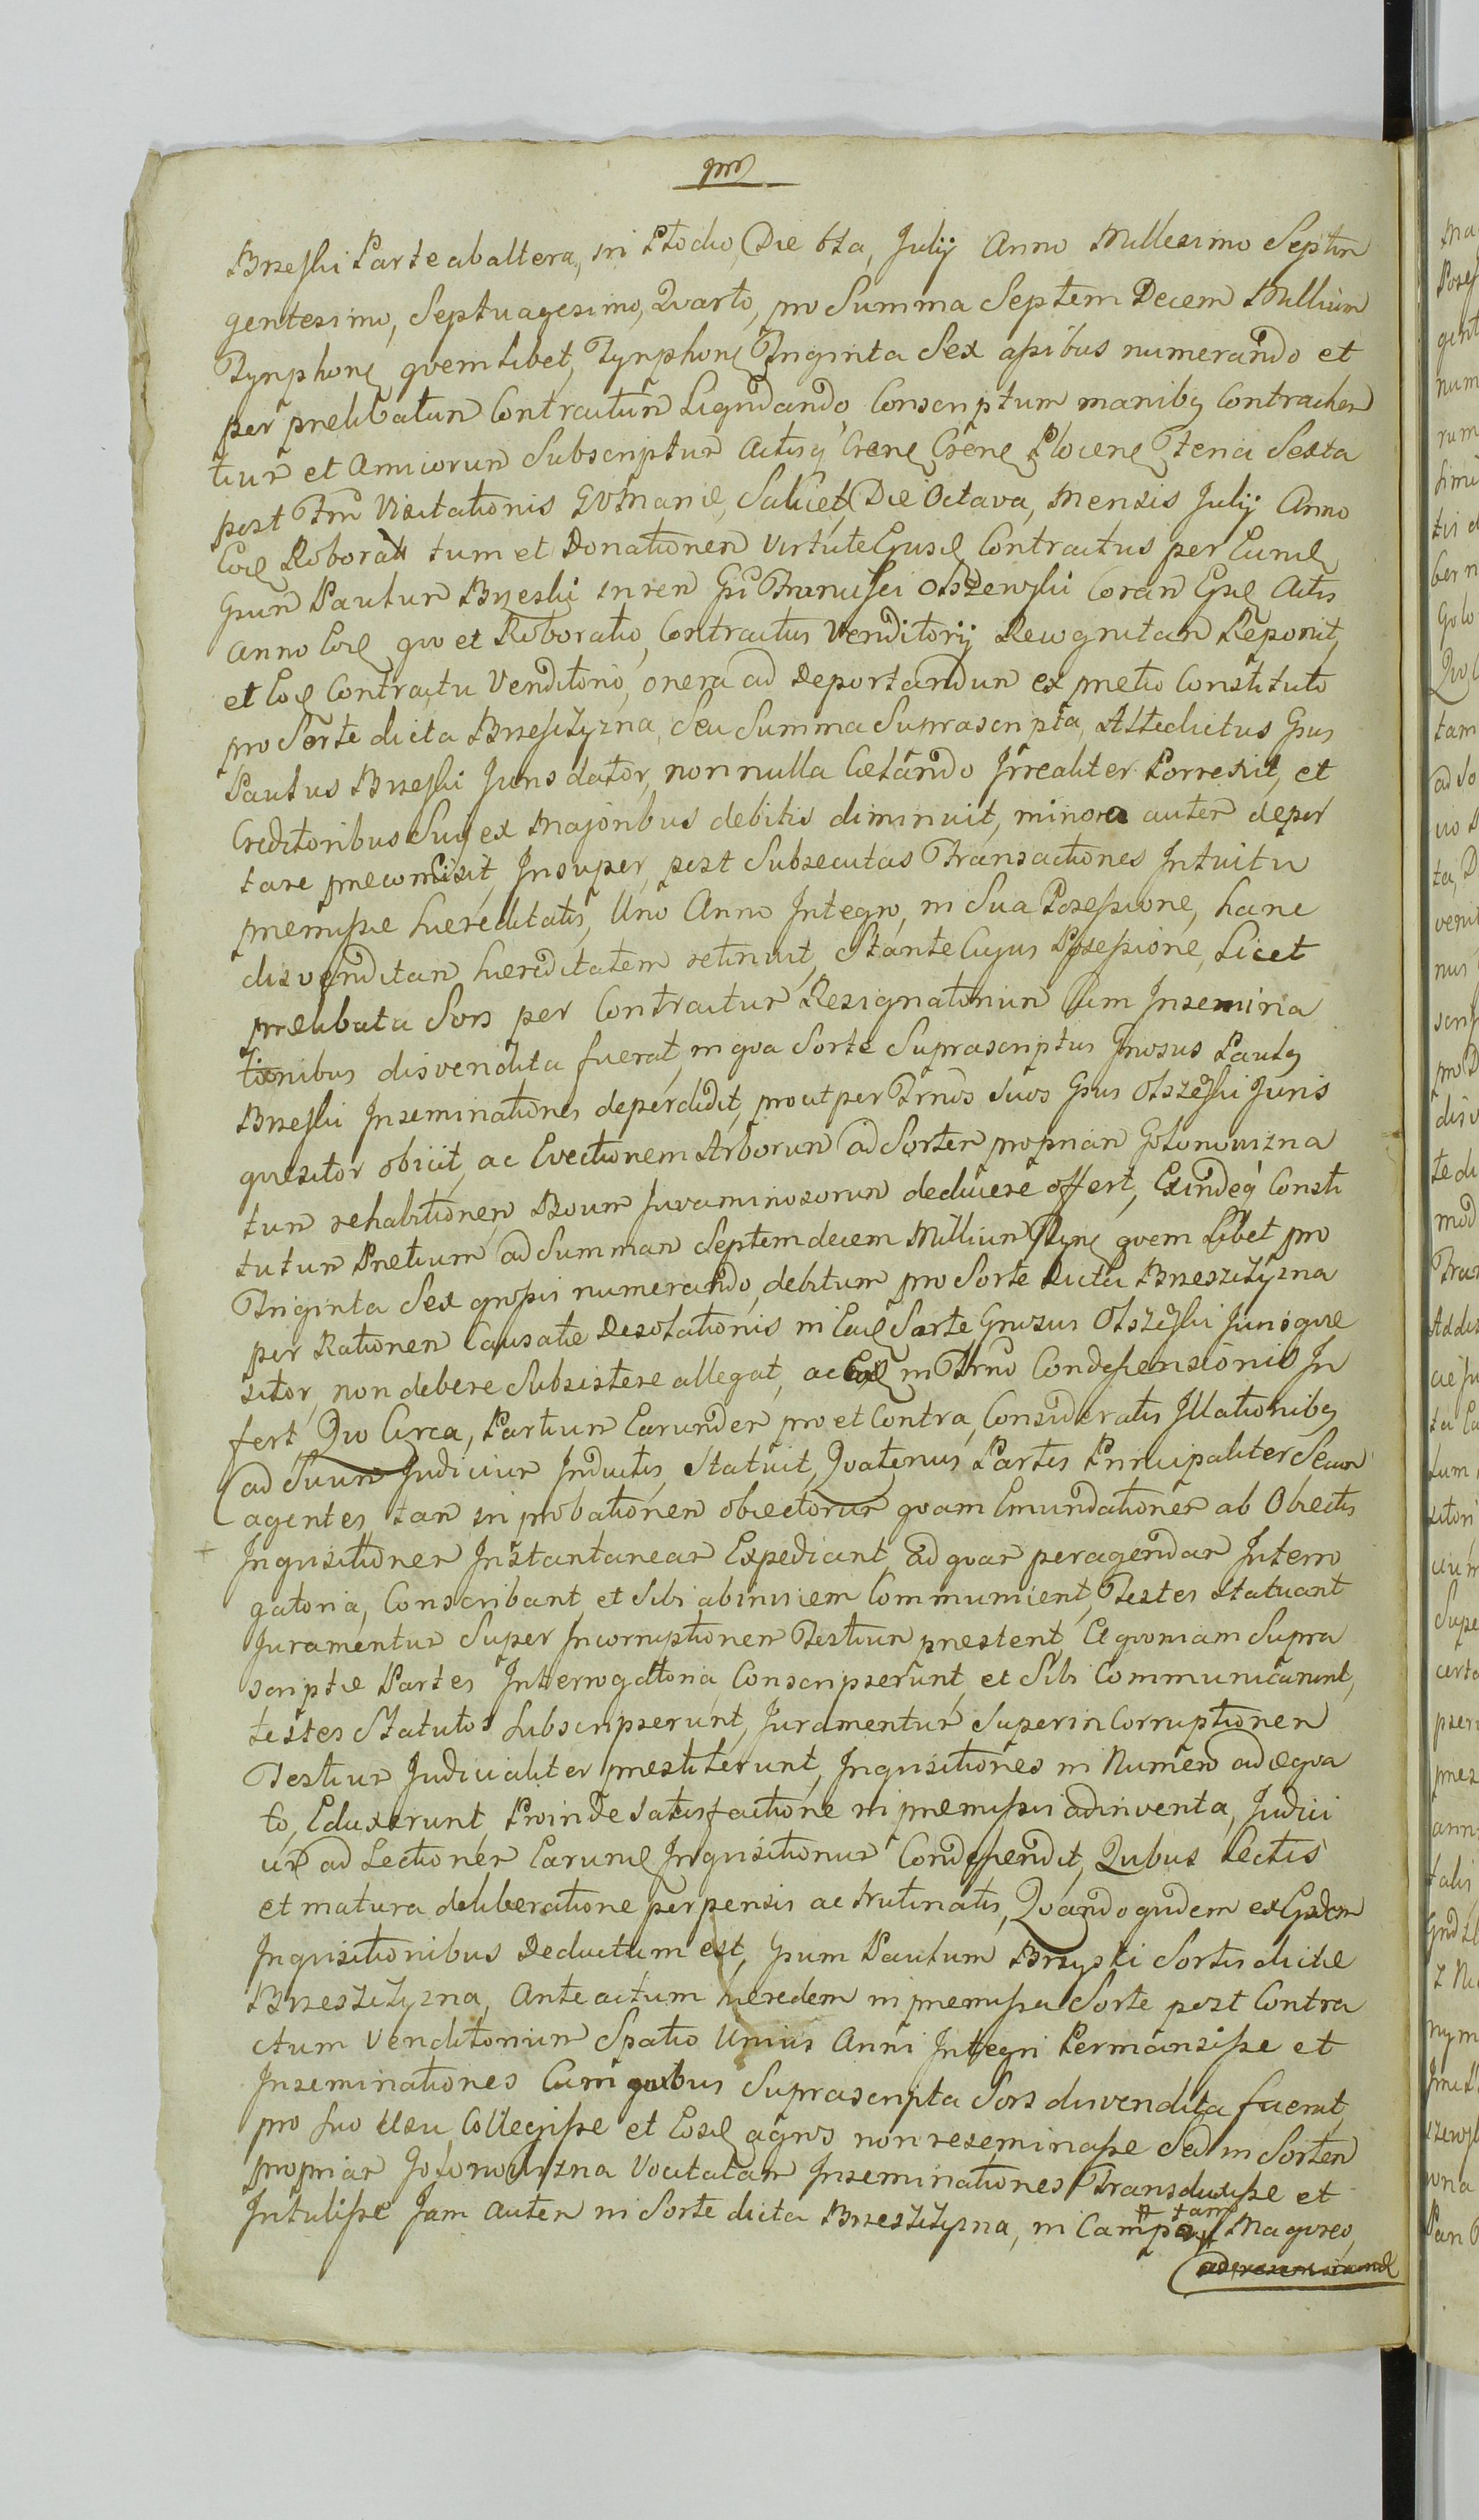 Brzeski Parte ab altera, in Płocko, Die 6ta, Julij Anno Millesimo Septin
gentesimo, Septuagesimo, Qvarto, pro Summa Septem Decem Millium
Tynphone, qvemlibet, Tynphone Triginta Sex aßibus numerando et
per prelibatum Contractum Liqvidando Conscriptum manibq Contrahen
tiur et Amicorum Subscriptum Actisq Crene Crene Plocene Feria Sexta
post Ftm Visitationis GVMariæ, Salicet, Die Octava, Mensis Julij Anno
Eod Roboratum et Donationem Virtute Ejusd Contractus per Eumd
Gsum Paulum Brzeski in rem Gsi Francisci Olszewski Coram Eisd Actis
Anno Eod qvo et Roboratio, Contractus Venditorij Recognitam Reponit,
et Eod Contractu Venditorio, onera ad Deportandum ex pretio Constituto
pro Sorte dicta Brzeszczyzna, Seu Summa Suprascripta, Attedictus Gsus
Paulus Brzeski Juris dator, non nulla Celando Irrealiter Porrexit, et
Creditoribus Suis ex Majoribus debitis diminuit, minora autem depor
tare precomisit, Insuper, post Subsecutas Transactiones Intuitu
premissæ hæreditatis, Uno Anno Integro, in Sua Poseßione, hanc
disvenditam hæreditatem retinuit, Stante Cujus Poseßione, Licet
prælibata Sors per Contractum Resignatorium Cum Insemina
tionibus disvendita fuerat, in qva Sorte Suprascriptus Gnosus Paulq
Brzeski Inseminationes deperdidit, prout per Trnos Suos Gsus Olszeski Juris
qvesitor obiicit, ac Evectionem Arborum ad Sortem propriam Gołonowizna
tum rehabitionem Boum Juvaminosorum deducere offert, Exindeq Consti
tutum Pretium ad Summam Septemdecem Millium Tyne qvem Libet pro
Triginta Sex großis numerando, debitum pro Sorte Dicta Brzeszczyzna
per Rationem Causatæ Desolationis in Ead Sorte Gnosus Olszeski Juris qvæ
sitor, non debere Subsistere allegat, ac Eod in Trno Condescensionis In
fert, Qvo Circa, Partium Earundem pro et Contra, Consideratis Illationibq
ad Suum Judicium Inductis, Statuit, Qvatenus Partes Principaliter Secum
agentes, tam in probationem obiectorum qvam Emundationem ab Obiectis
Inqvisitionem Instantaneam Expediant, ad qvam peragendam Interro
gatoria, Conscribant, et Sibi abinvicem Communicent, Testes statuant
Juramentum Super Incorruptionem Testium prestent, Et qvoniam Supra
scriptæ Partes Interrogatoria Conscripserunt, et Sibi Communicarunt,
testes Statutos Subscripserunt, Juramentum Super inCorruptionem
Testium Judicialiter prestiterunt, Inqvisitiones in Numero adæqva
to, Eduxerunt, Proinde satisfactione in premissis adinventa, Judici
um ad Lectionem Earumd Inqvisitionum Condescendit, Qvibus Lectis
et matura deliberatione perpensis ac trutinatis, Qvandoqvidem ex Eisdem
Inqvisitionibus Deductum est, Gsum Paulum Brzyski Sortis dictæ
Brzeszczyzna, Ante actum heredem in premissa Sorte post Contra
ctum Venditorium Spatio Unius Anni Integri Permansisse et
Inseminationes Cum qvibus Suprascripta Sors disvendita fuerat,
pro Suo Usu, Collegisse et Eosd agros non reseminasse Sed in Sortem
propriam Gołonowizna Vocitatam Inseminationes Transduxisse et
Intulisse Jam Autem in Sorte dicta Brzeszczyzna, in Campo tam Magvreo,